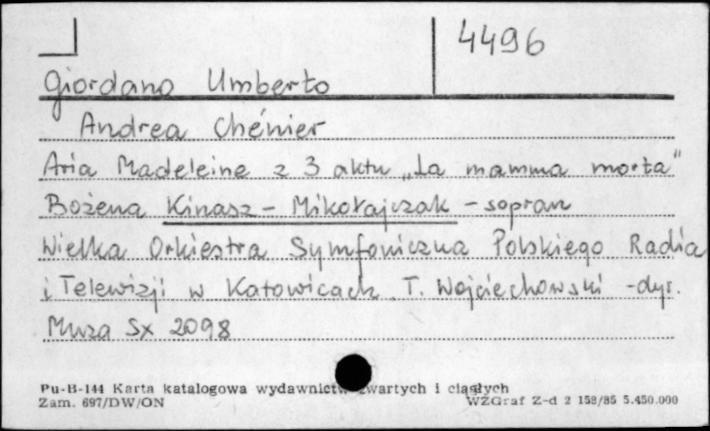 4496
Giordano Umberto
Andrea Chénier
Aria Madeleine z 3 aktu „La mamma morta"
Bożena Kinasz - Mikołajczak - sopran
Wielka Orkiestra Symfoniczna Polskiego Radia
i Telewizji w Katowicach. T. Wojciechowski - dyr.
Muza Sx 2098
Pu-B-144 Karta katalogowa wydawnictw zwartych i ciągłych
Zam. 697/DW/ON WZGraf Z-d 2 158/85 5.450.000